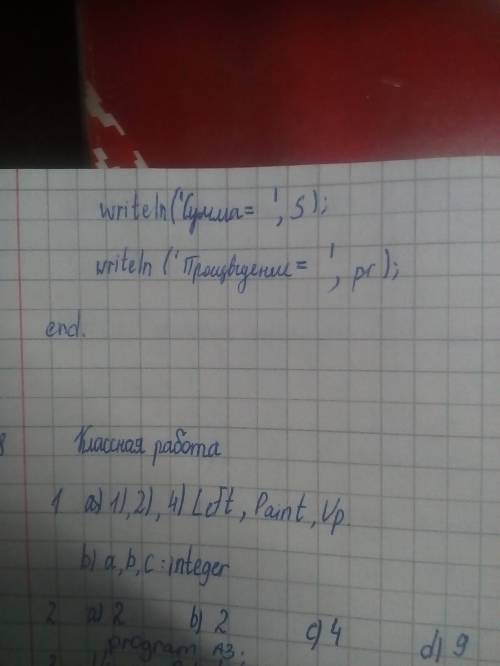 writeln('Сумма= ', S);
writeln ('Произведение = ', pr);
end.
8 Классная работа
1 a) 1), 2), 4) Left, Paint, Up
b) a, b, c : integer
2 a) 2 b) 2 c) 4 d) 9
program A3;